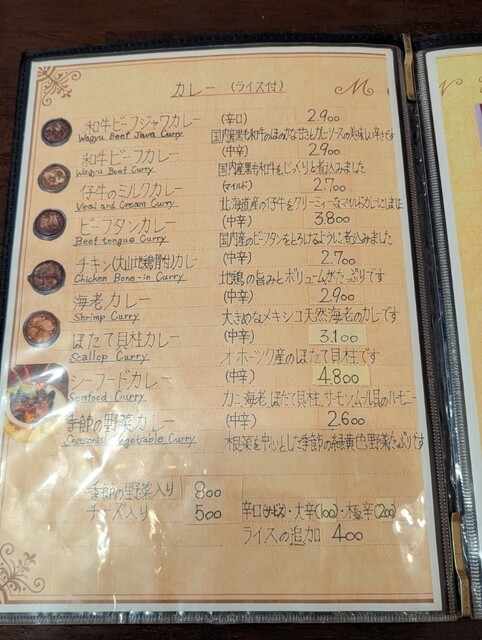 カレー (ライス付)
和牛ビーフジャワカレー (辛口) 2.900
Wagyu Beef Java Curry 国内産黒毛和牛の
和牛ビーフカレー (中辛) 2.900
Wagyu Beef Curry 国内産黒毛和牛をじっくりと煮込みました
仔牛のミルクカレー (マイルド) 2.700
Veal and Cream Curry 北海道産の仔牛をクリーミィーなマイルドカレーにしました
ビーフタンカレー (中辛) 3.800
Beef tongue Curry 国内産のビーフタンをとろけるように煮込みました
チキン(大山地鶏骨付)カレー (中辛) 2.700
Chicken Bone-in Curry 地鶏の旨みとボリュームがたっぷりです
海老カレー (中辛) 2.900
Shrimp Curry 大きめなメキシコ天然海老のカレーです
ほたて貝柱カレー (中辛) 3.100
Scallop Curry オホーツク産のほたて貝柱です
シーフードカレー (中辛) 4.800
Seafood Curry カニ、海老、ほたて貝柱、サーモン、ムール貝のハーモニー
季節の野菜カレー (中辛) 2.600
Seasonal Vegetable Curry 根菜を中心とした季節の緑黄色野菜たっぷりです
季節の野菜入り 800
チーズ入り 500 辛口(サービス)・大辛(100)・極辛(200)
ライスの追加 400